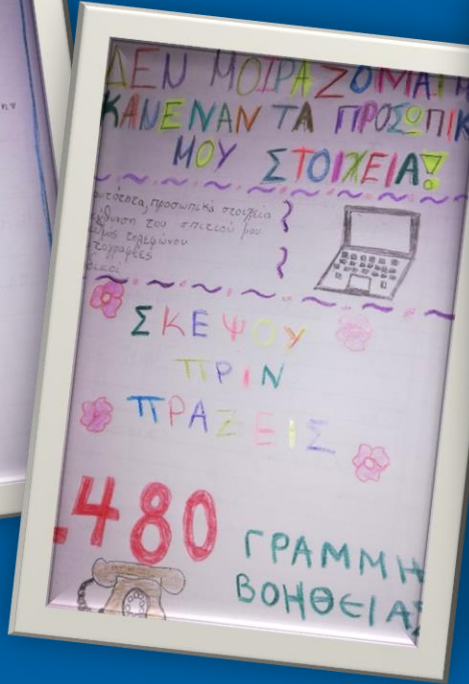 ΔΕΝ ΜΟΙΡΑΖΟΜΑΙ Μ
ΚΑΝΕΝΑΝ ΤΑ ΠΡΟΣΩΠΙΚ
ΜΟΥ ΣΤΟΙΧΕΙΑ!
υτότητα, προσωπικά στοιχεία
εύθυνση του σπιτιού μου
θμός τηλεφώνου
τογραφίες
δικοί
ΣΚΕΨΟΥ
ΠΡΙΝ
ΠΡΑΞΕΙΣ
.480
ΓΡΑΜΜΗ
ΒΟΗΘΕΙΑΣ